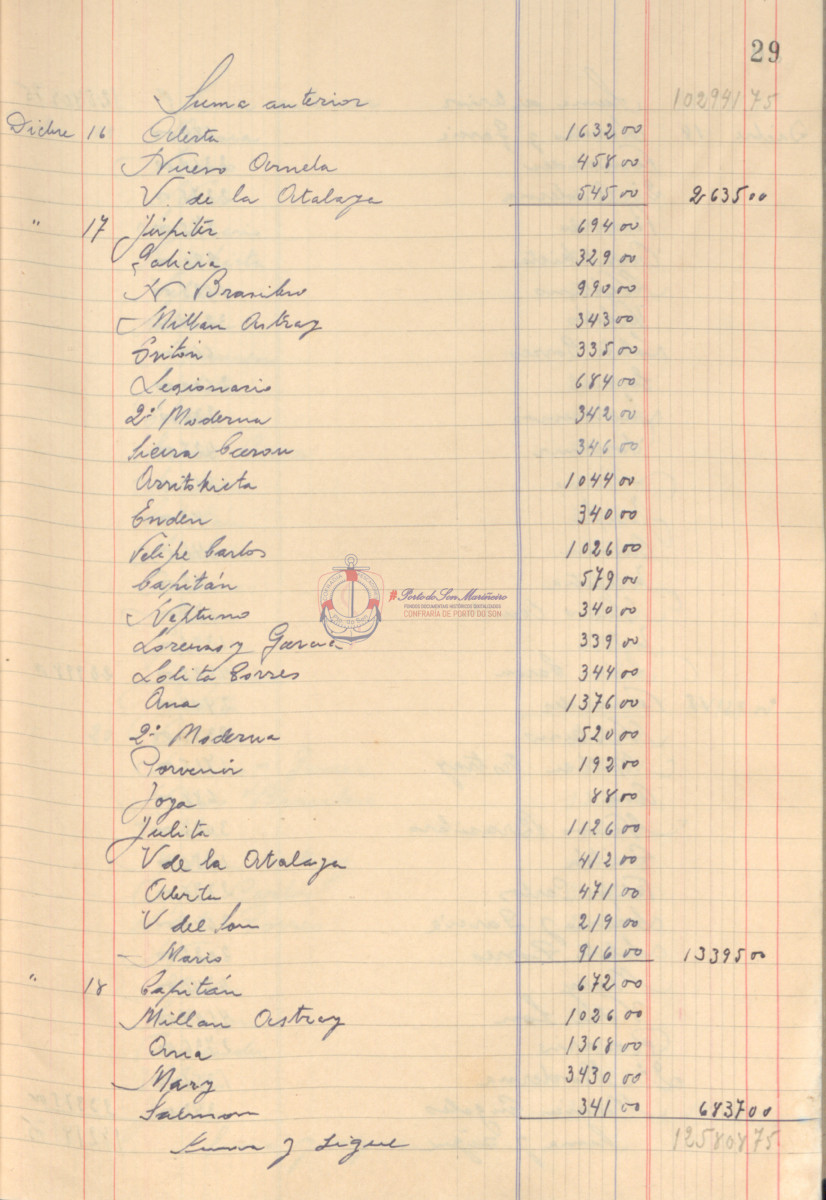 29
Suma anterior 102941 75
Dicbre 16 Alerta 1632 00
Nuevo Arnela 458 00
V. de la Atalaya 545 00 2635 00
" 17 Júpiter 694 00
Galicia 329 00
N Brasileo 990 00
Millan Astray 343 00
Tritón 335 00
Legionario 684 00
2ª Moderna 342 00
Sierra 346 00
Arritokieta 1044 00
Enden 340 00
Felipe Carlos 1026 00
Capitán 579 00
Neptuno 340 00
Lorenzo y Garcia 339 00
Lolita Torres 344 00
Ana 1376 00
2ª Moderna 520 00
Porvenir 192 00
Joya 88 00
Julita 1126 00
V de la Atalaya 412 00
Alerta 471 00
V del Son 219 00
Mario 916 00 13395 00
" 18 Capitán 672 00
Millan Astray 1026 00
Ana 1368 00
Mary 3430 00
Salmon 341 00 6837 00
Suma y sigue 125808 75
#PortodoSonMariñeiro
FONDOS DOCUMENTAIS HISTÓRICOS DIXITALIZADOS
CONFRARÍA DE PORTO DO SON